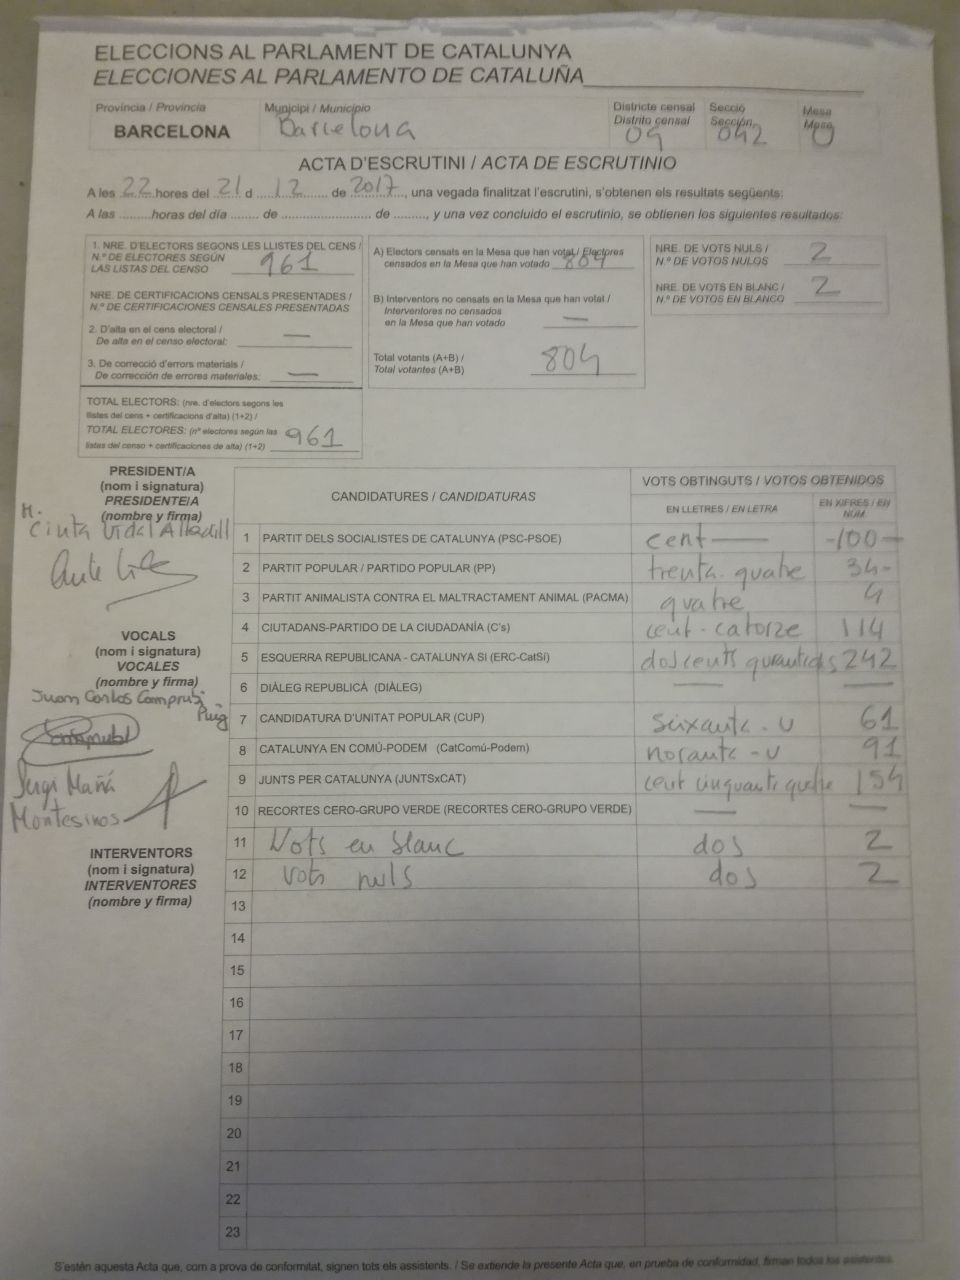 ELECCIONS AL PARLAMENT DE CATALUNYA
ELECCIONES AL PARLAMENTO DE CATALUÑA
Provincia / Provincia Municipi / Municipio Districte censal Secció Mesa
BARCELONA Barcelona Distrito censal 09 Sección 042 Mesa U
ACTA D'ESCRUTINI / ACTA DE ESCRUTINIO
A les 22 hores del 21 d 12 de 2017, una vegada finalitzat l'escrutini, s'obtenen els resultats següents:
A las .........horas del día ........ de ...................... de ........., y una vez concluido el escrutinio, se obtienen los siguientes resultados:
1. NRE. D'ELECTORS SEGONS LES LLISTES DEL CENS /
N.º DE ELECTORES SEGÚN
LAS LISTAS DEL CENSO 961
NRE. DE CERTIFICACIONS CENSALS PRESENTADES /
N.º DE CERTIFICACIONES CENSALES PRESENTADAS
2. D'alta en el cens electoral /
De alta en el censo electoral: —
3. De correcció d'errors materials /
De corrección de errores materiales: —
TOTAL ELECTORS: (nre. d'electors segons les
llistes del cens + certificacions d'alta) (1+2) /
TOTAL ELECTORES: (nº electores según las
listas del censo + certificaciones de alta) (1+2) 961
A) Electors censats en la Mesa que han votat / Electores
censados en la Mesa que han votado 804
B) Interventors no censats en la Mesa que han votat /
Interventores no censados
en la Mesa que han votado —
Total votants (A+B) /
Total votantes (A+B) 804
NRE. DE VOTS NULS /
N.º DE VOTOS NULOS 2
NRE. DE VOTS EN BLANC /
N.º DE VOTOS EN BLANCO 2
PRESIDENT/A
(nom i signatura)
PRESIDENTE/A
(nombre y firma)
M.
Cinta Vidal Alladill
VOCALS
(nom i signatura)
VOCALES
(nombre y firma)
Juan Carlos Camprubí
Puig
Sergi Mañá
Montesinos
INTERVENTORS
(nom i signatura)
INTERVENTORES
(nombre y firma)
CANDIDATURES / CANDIDATURAS VOTS OBTINGUTS / VOTOS OBTENIDOS
EN LLETRES / EN LETRA EN XIFRES / EN NÚM
1 PARTIT DELS SOCIALISTES DE CATALUNYA (PSC-PSOE) cent — -100-
2 PARTIT POPULAR / PARTIDO POPULAR (PP) trenta-quatre 34-
3 PARTIT ANIMALISTA CONTRA EL MALTRACTAMENT ANIMAL (PACMA) quatre 4
4 CIUTADANS-PARTIDO DE LA CIUDADANÍA (C's) cent-catorze 114
5 ESQUERRA REPUBLICANA - CATALUNYA SI (ERC-CatSí) doscents quarantidos 242
6 DIÀLEG REPUBLICÀ (DIÀLEG) — —
7 CANDIDATURA D'UNITAT POPULAR (CUP) seixanta-u 61
8 CATALUNYA EN COMÚ-PODEM (CatComú-Podem) noranta-u 91
9 JUNTS PER CATALUNYA (JUNTSxCAT) cent cinquanta quatre 154
10 RECORTES CERO-GRUPO VERDE (RECORTES CERO-GRUPO VERDE) — —
11 Vots en blanc dos 2
12 vots nuls dos 2
13
14
15
16
17
18
19
20
21
22
23
S'estén aquesta Acta que, com a prova de conformitat, signen tots els assistents. / Se extiende la presente Acta que, en prueba de conformidad, firman todos los asistentes.